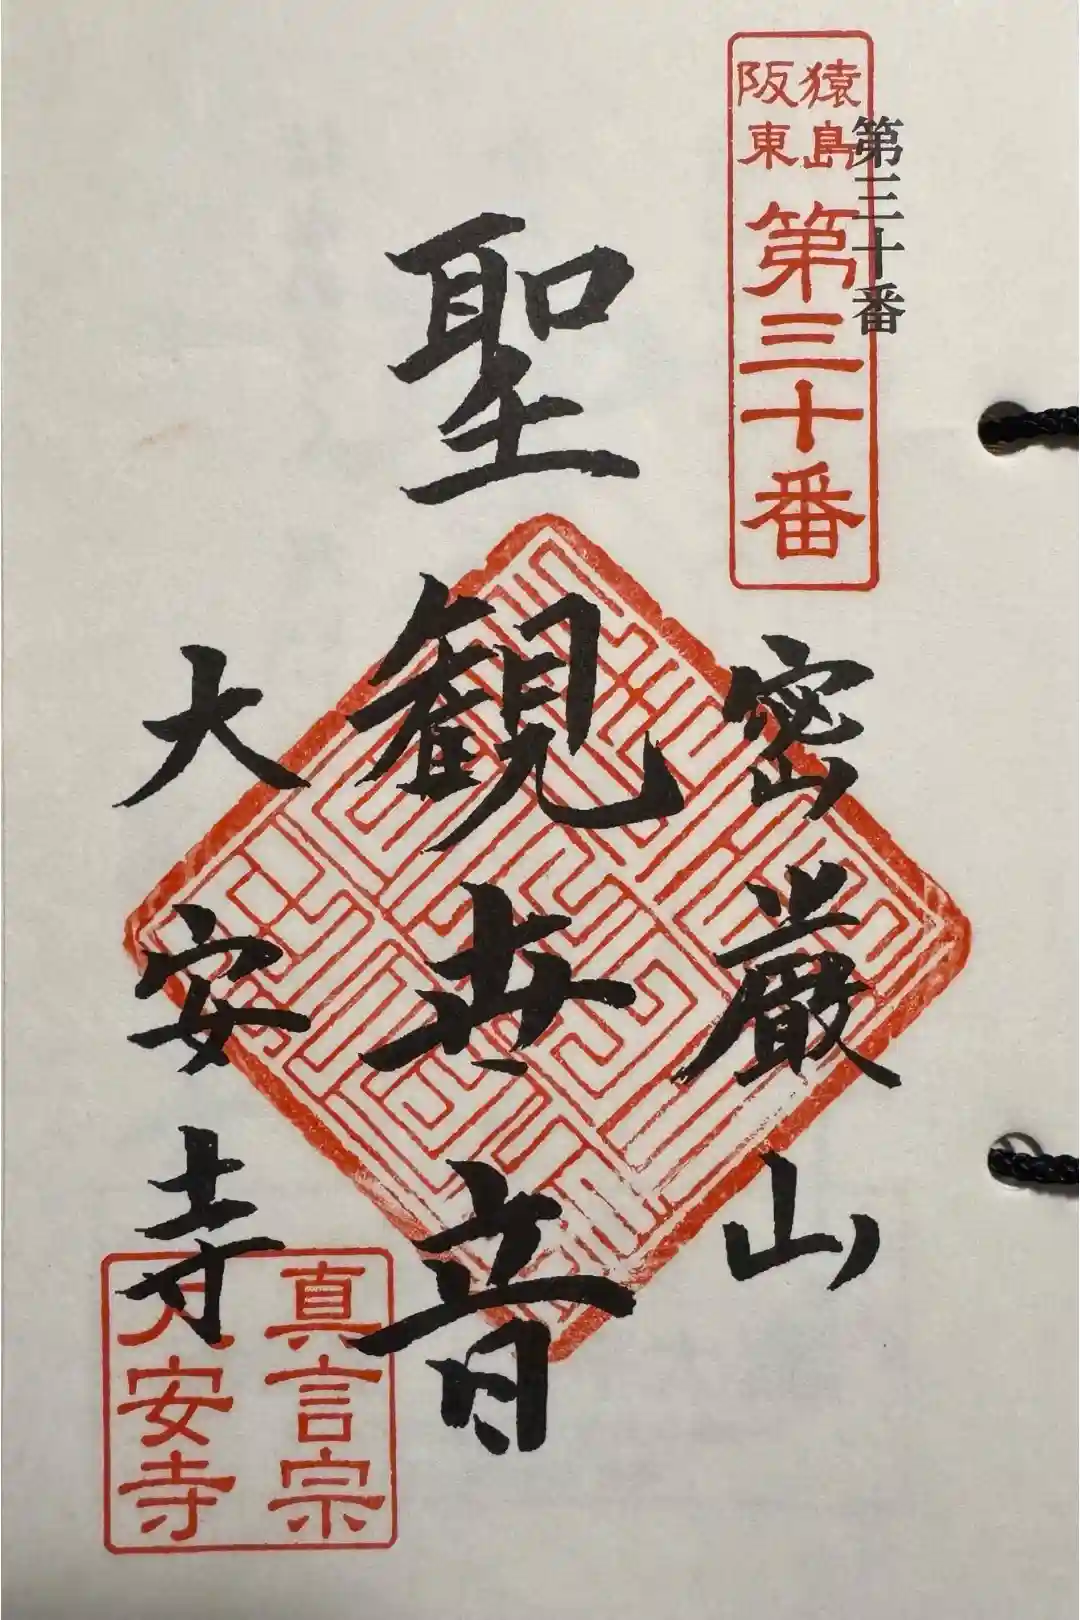 猿島
阪東
第三十番
第三十番
密巌山
聖観世音
大安寺
真言宗
大安寺